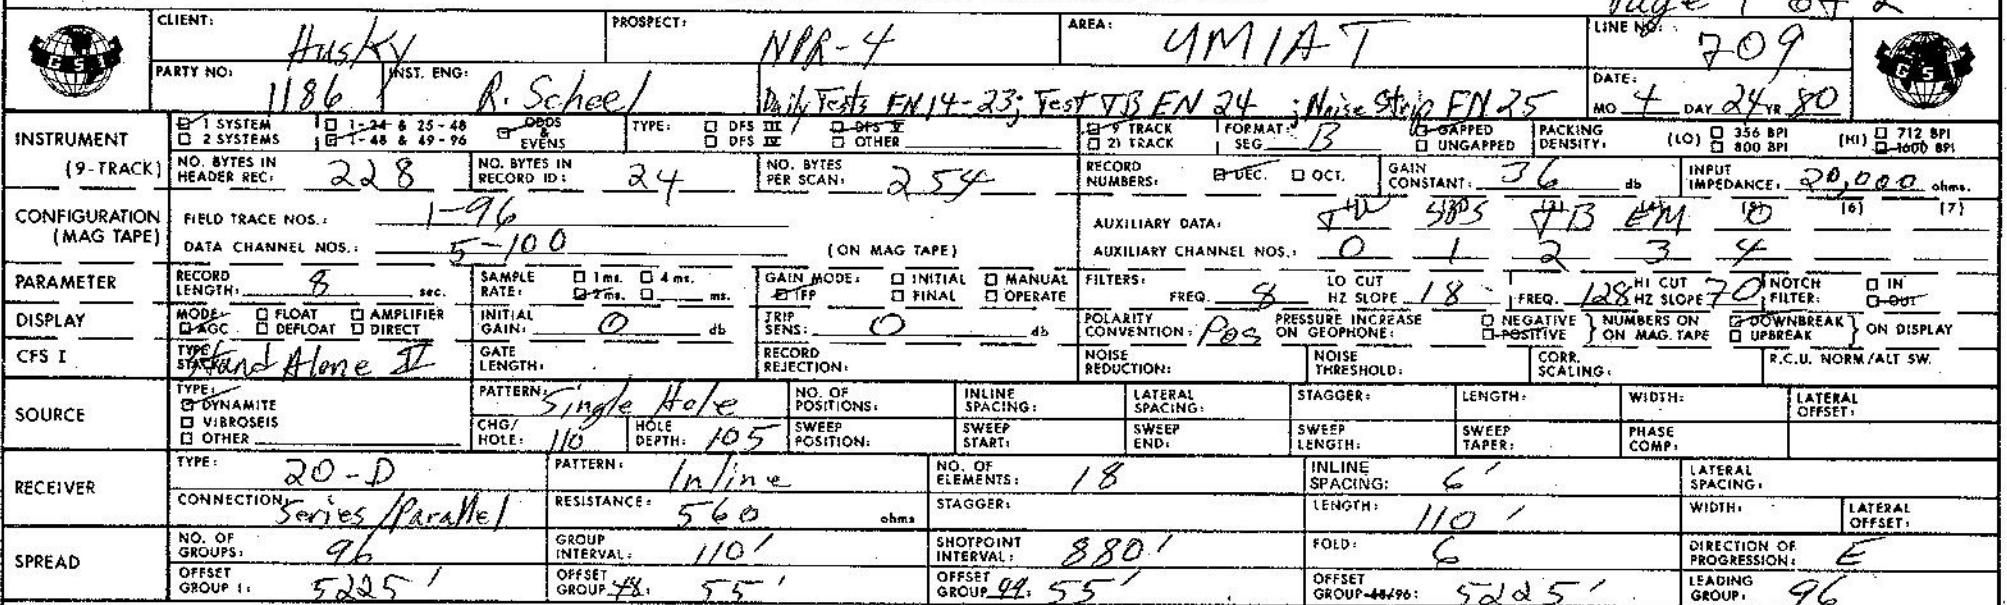 Page 1 of 2
CLIENT: Husky PROSPECT: NPR-4 AREA: UMIAT LINE NO: 709
GSI
PARTY NO: 1186 INST. ENG: R. Scheel Daily Tests FN 14-23; Test TB FN 24 ; Noise Strip FN 25 DATE: MO 4 DAY 24 YR 80
GSI
INSTRUMENT (9-TRACK)
1 SYSTEM 1-24 & 25-48 ODDS & EVENS TYPE: DFS III DFS V 9 TRACK FORMAT: SEG B GAPPED PACKING DENSITY: (LO) 356 BPI (HI) 712 BPI
2 SYSTEMS 1-48 & 49-96 DFS IV OTHER 21 TRACK UNGAPPED 800 BPI 1600 BPI
NO. BYTES IN HEADER REC: 228 NO. BYTES IN RECORD ID: 24 NO. BYTES PER SCAN: 254 RECORD NUMBERS: DEC. OCT. GAIN CONSTANT: 36 db INPUT IMPEDANCE: 20,000 ohms.
CONFIGURATION (MAG TAPE)
FIELD TRACE NOS.: 1-96 AUXILIARY DATA: (5) 0 (6) (7) TB EM
DATA CHANNEL NOS.: 5-100 (ON MAG TAPE) AUXILIARY CHANNEL NOS.: 0 1 2 3 4
PARAMETER RECORD LENGTH: 8 sec. SAMPLE RATE: 1 ms. 4 ms. 2 ms. ms. GAIN MODE: INITIAL MANUAL IFP FINAL OPERATE FILTERS: FREQ. 8 LO CUT HZ SLOPE 18 FREQ. 128 HI CUT HZ SLOPE 70 NOTCH FILTER: IN OUT
DISPLAY MODE FLOAT AMPLIFIER AGC DEFLOAT DIRECT INITIAL GAIN: 0 db TRIP SENS: 0 db POLARITY CONVENTION: Pos PRESSURE INCREASE ON GEOPHONE: NEGATIVE POSITIVE } NUMBERS ON MAG. TAPE DOWNBREAK UPBREAK } ON DISPLAY
CFS I TYPE Stand Alone IV GATE LENGTH: RECORD REJECTION: NOISE REDUCTION: NOISE THRESHOLD: CORR. SCALING: R.C.U. NORM/ALT SW.
SOURCE
TYPE: DYNAMITE VIBROSEIS OTHER
PATTERN: Single Hole NO. OF POSITIONS: INLINE SPACING: LATERAL SPACING: STAGGER: LENGTH: WIDTH: LATERAL OFFSET:
CHG/ HOLE: 110 HOLE DEPTH: 105 SWEEP POSITION: SWEEP START: SWEEP END: SWEEP LENGTH: SWEEP TAPER: PHASE COMP:
RECEIVER
TYPE: 20-D PATTERN: Inline NO. OF ELEMENTS: 18 INLINE SPACING: 6' LATERAL SPACING:
CONNECTION: Series/Parallel RESISTANCE: 560 ohms STAGGER: LENGTH: 110' WIDTH: LATERAL OFFSET:
SPREAD
NO. OF GROUPS: 96 GROUP INTERVAL: 110' SHOTPOINT INTERVAL: 880' FOLD: 6 DIRECTION OF PROGRESSION: E
OFFSET GROUP 1: 5225' OFFSET GROUP 48: 55' OFFSET GROUP 55' OFFSET GROUP 48/96: 5225' LEADING GROUP: 96